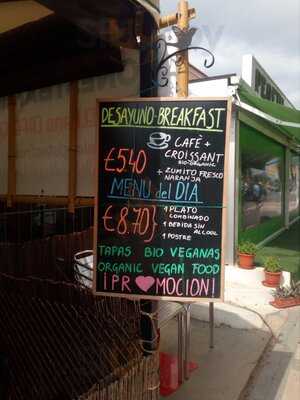 DESAYUNO-BREAKFAST
CAFÈ +
CROISSANT
BIO-ORGANIC
€5.40
+ ZUMITO FRESCO
NARANJA
MENU del DIA
€8.70}
1 PLATO
COMBINADO
1 BEBIDA SIN
ALCOOL
1 POSTRE
TAPAS BIO VEGANAS
ORGANIC VEGAN FOOD
¡PR♥MOCION!